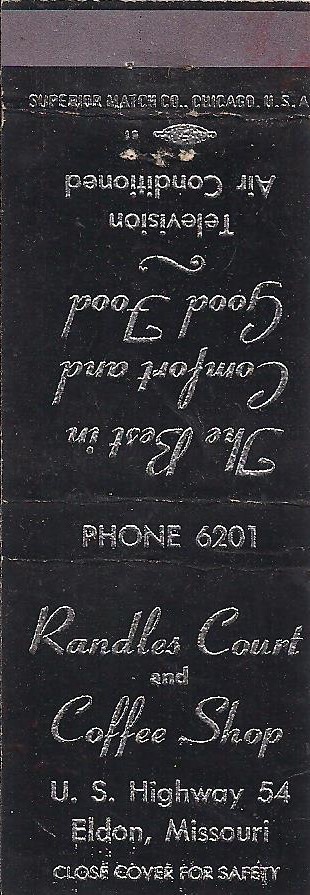 SUPERIOR MATCH CO., CHICAGO, U.S.A
The Best in
Comfort and
Good Food
Television
Air Conditioned
PHONE 6201
Randles Court
and
Coffee Shop
U. S. Highway 54
Eldon, Missouri
CLOSE COVER FOR SAFETY